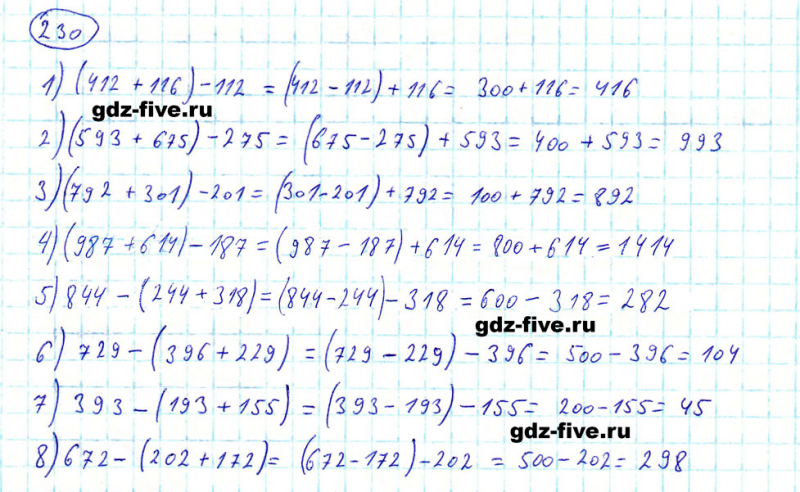 230
1) (412 + 116) - 112 = (412 - 112) + 116 = 300 + 116 = 416
gdz-five.ru
2) (593 + 675) - 275 = (675 - 275) + 593 = 400 + 593 = 993
3) (792 + 301) - 201 = (301 - 201) + 792 = 100 + 792 = 892
4) (987 + 614) - 187 = (987 - 187) + 614 = 800 + 614 = 1414
5) 844 - (244 + 318) = (844 - 244) - 318 = 600 - 318 = 282
gdz-five.ru
6) 729 - (396 + 229) = (729 - 229) - 396 = 500 - 396 = 104
7) 393 - (193 + 155) = (393 - 193) - 155 = 200 - 155 = 45
gdz-five.ru
8) 672 - (202 + 172) = (672 - 172) - 202 = 500 - 202 = 298